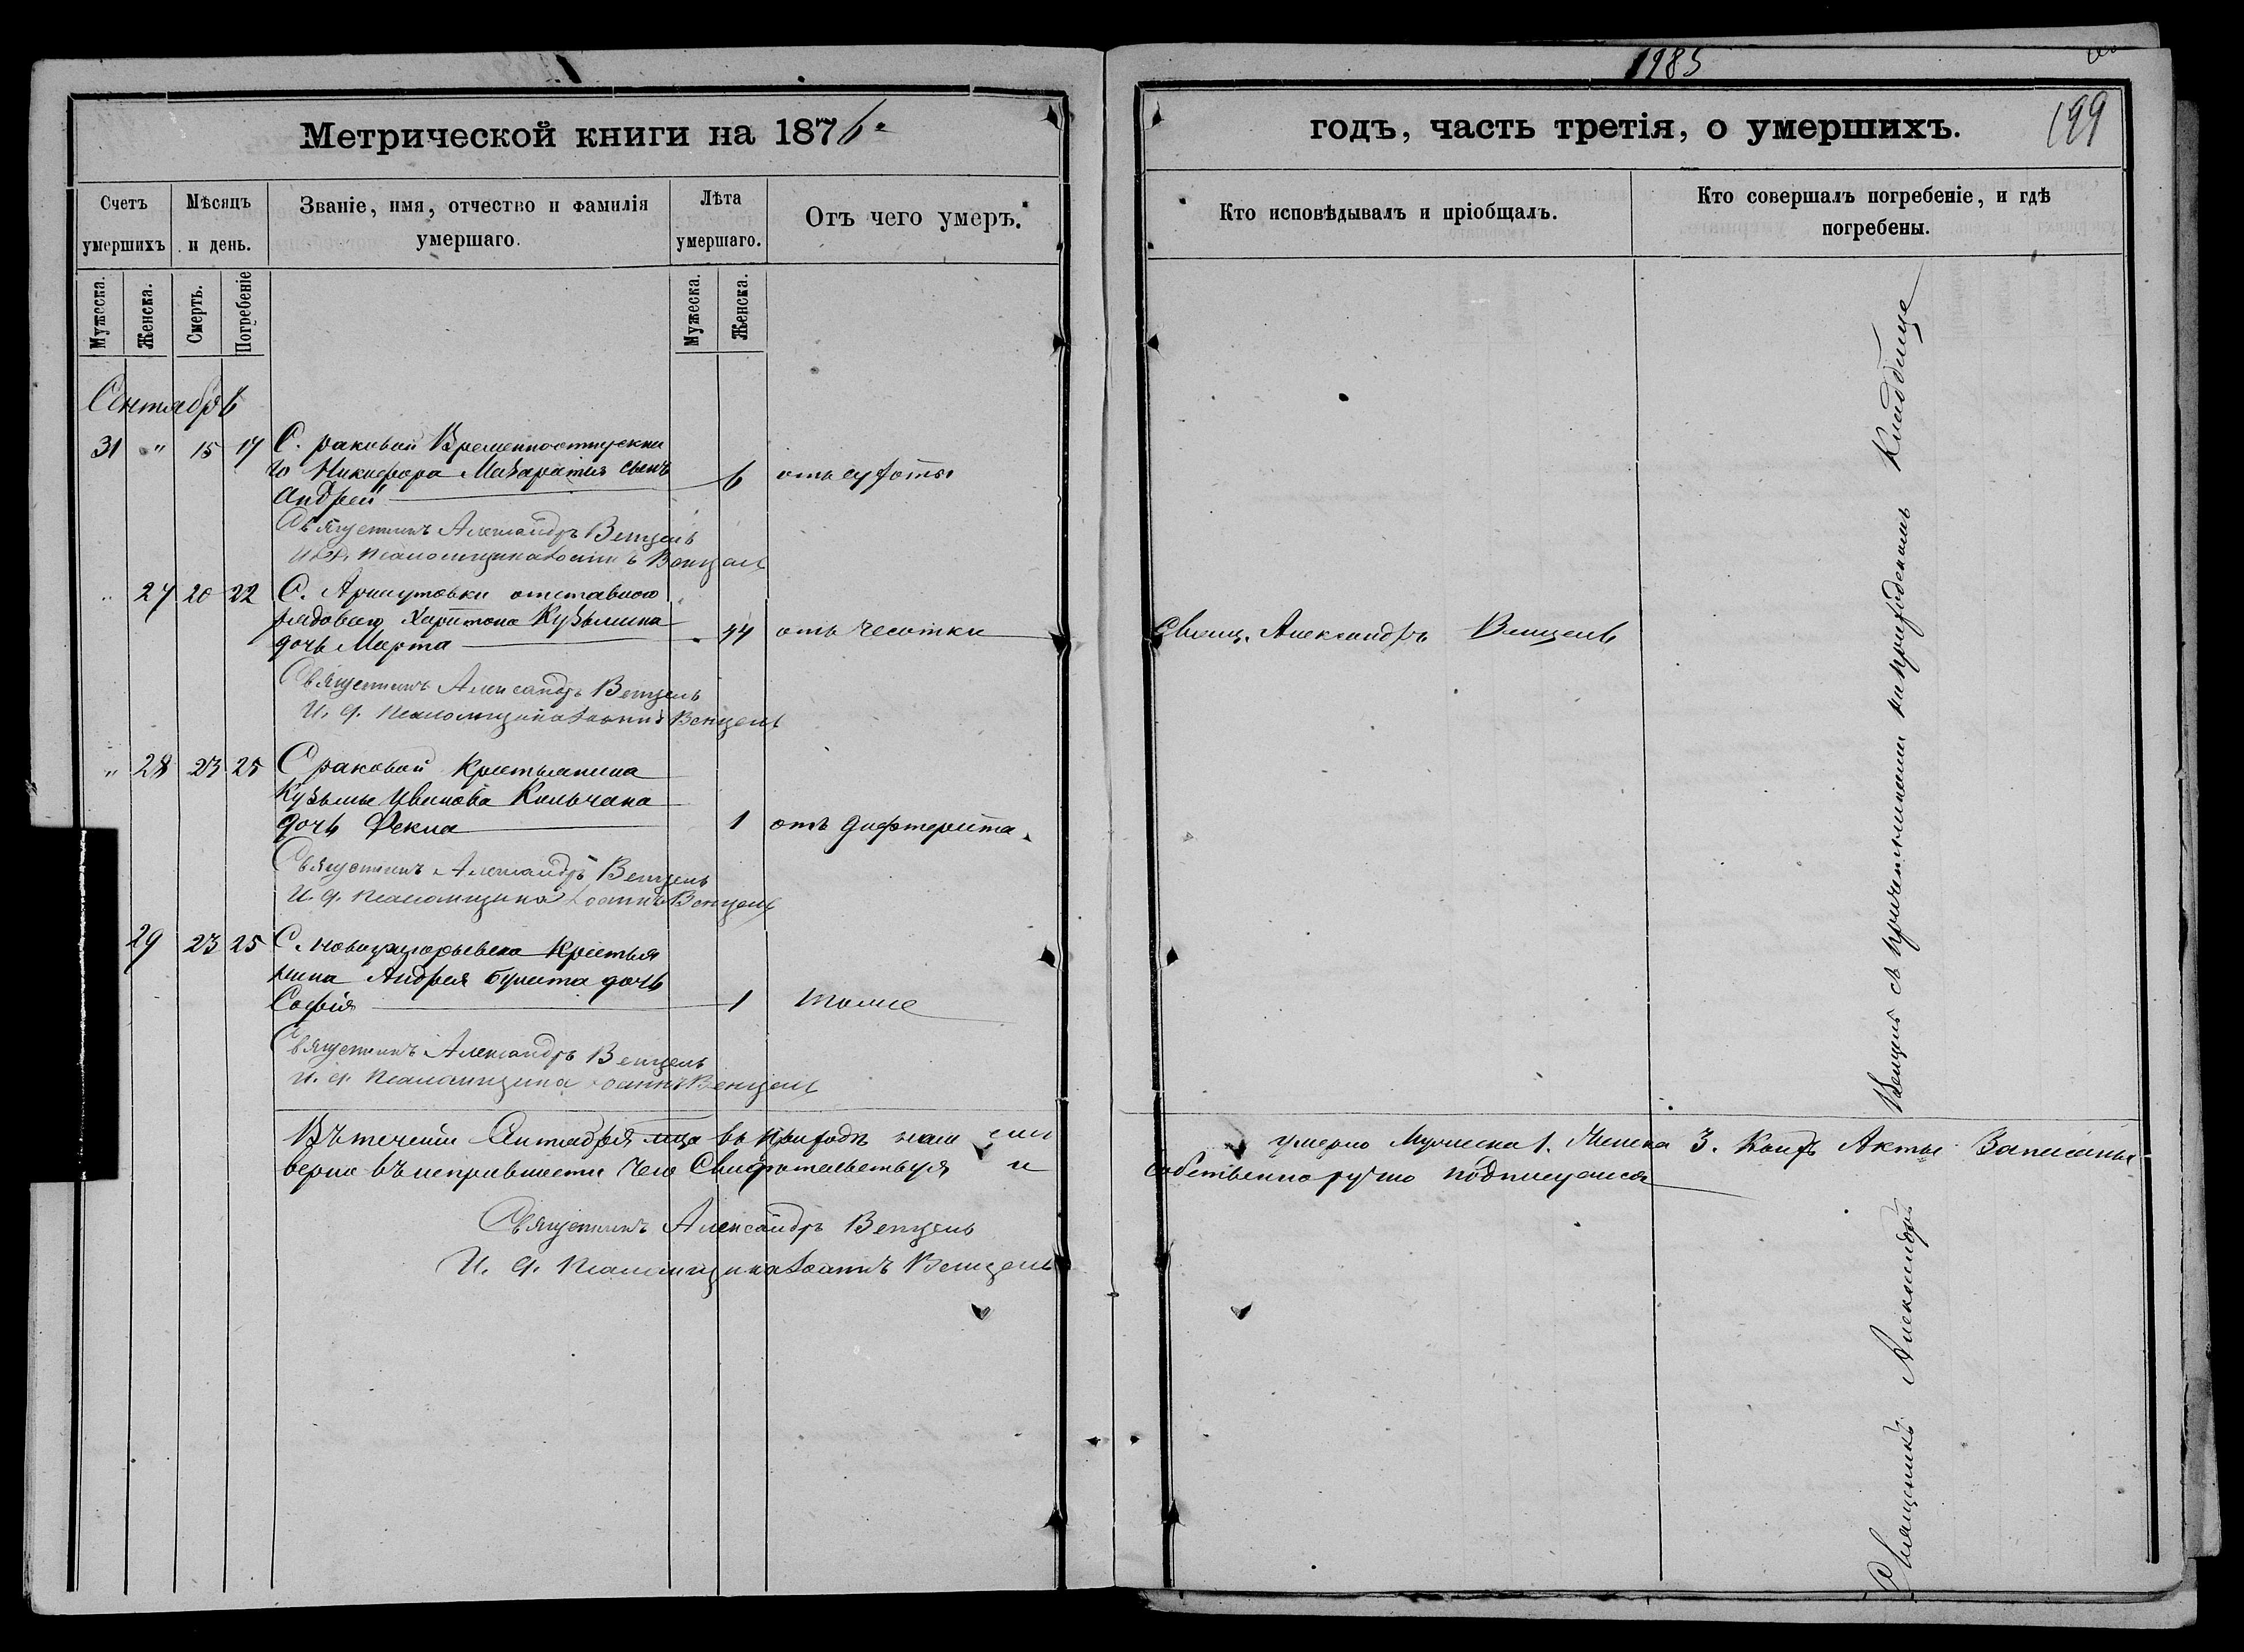 1985
199
Метрической книги на 1876
годъ, часть третія, о умершихъ.
Счетъ умершихъ
Мѣсяцъ и день.
Званіе, имя, отчество и фамилія умершаго.
Лѣта умершаго.
Отъ чего умеръ.
Кто исповѣдывалъ и пріобщалъ.
Кто совершалъ погребеніе, и гдѣ погребены.
Мужеска.
Женска.
Смерть.
Погребеніе
Мужеска.
Женска.
Сентябрь
31 " 15 17 С. раковой Временноотпускна
го Никифора сынъ
Андрей 6 отъ сухоты
Священникъ Александръ Венцель
И. д. псаломщика Іоаннъ Венцель
" 27 20 22 С. отставного
рядового Харитона Кузьмина
дочь Марта 44 отъ чесотки Свящ. Александръ Венцель
Священникъ Александръ Венцель
И. д. псаломщика Іоаннъ Венцель
" 28 23 25 С раковой Крестьянина
Кузьмы Иванова Кильчана
дочь Фекла 1 отъ дифтерита
Священникъ Александръ Венцель
И. д. псаломщика Іоаннъ Венцель
29 23 25 С. Крестья
нина Андрея дочь
Софія 1 тоже
Священникъ Александръ Венцель
И. д. псаломщика Іоаннъ Венцель
Въ теченіи Сентября м-ца въ приходѣ умерло Мужеска 1. Женска 3. Акты Записаны
верно въ чего Свидѣтельствуя и собственноручно подписуемся
Священникъ Александръ Венцель
И. д. псаломщика Іоаннъ Венцель
Священникъ Александръ Венцель съ причетниками на приходскомъ Кладбище